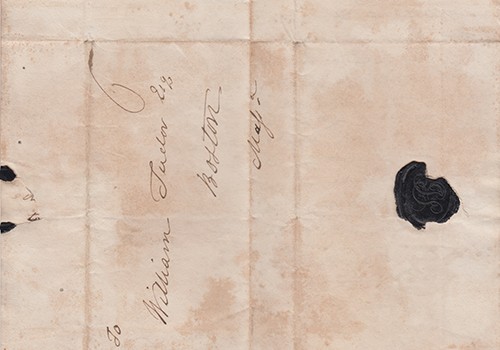 To
William Tudor Esq
Boston
Mass
6